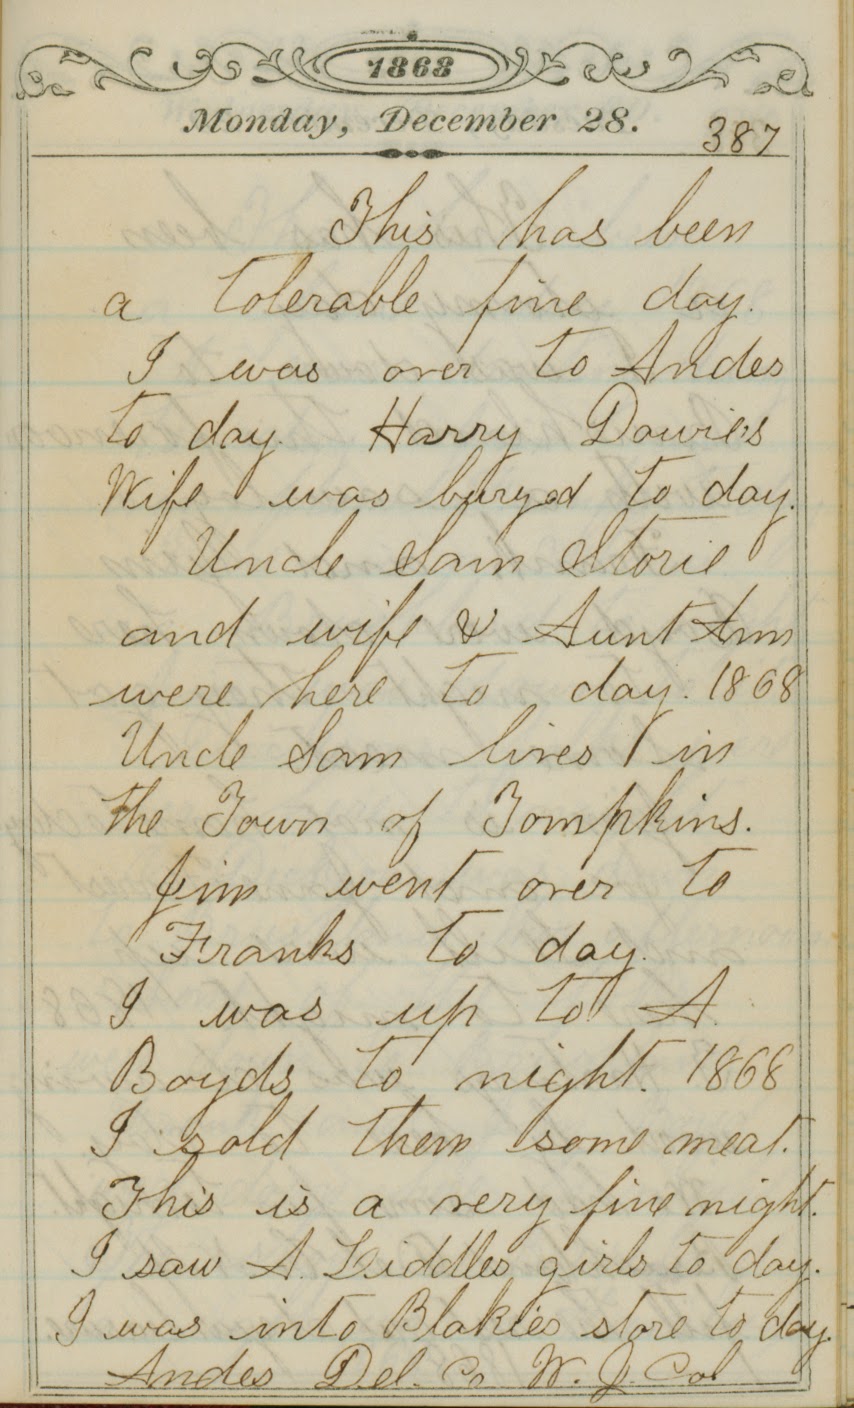 1868
Monday, December 28.
387
This has been
a tolerable fine day.
I was over to Andes
to day. Harry Dowie's
Wife was buryed to day.
Uncle Sam Storie
and wife & Aunt Ann
were here to day. 1868
Uncle Sam lives in
the Town of Tompkins.
Jim went over to
Franks to day.
I was up to A
Boyds to night. 1868
I sold them some meat.
This is a very fine night.
I saw A. Liddles girls to day.
I was into Blakies store to day.
Andes Del. Co W. J. Col